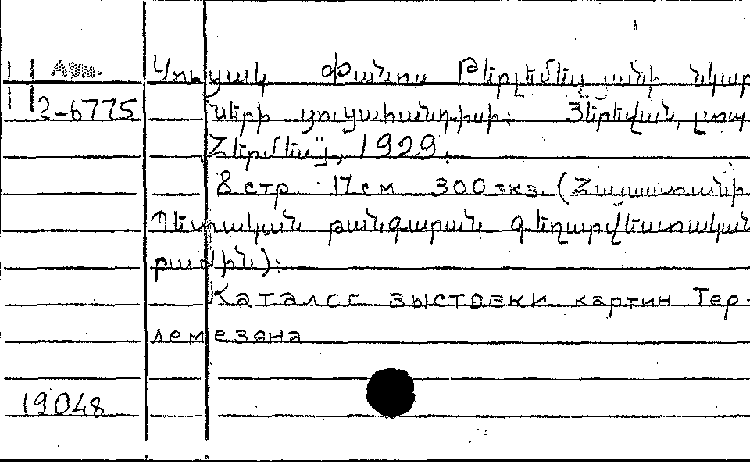 Арм.
Ցուցակ Փանոս Թերլեմեզյանի նկար
2-6775
ների ցուցահանդիսի: Յերեվան,
1929.
8 стр 17 см 300 экз. (Հայաստանի
Պետական թանգարան. գեղարվեստական
բաժին):
Каталог выставки картин Тер-
лемезяна
19048